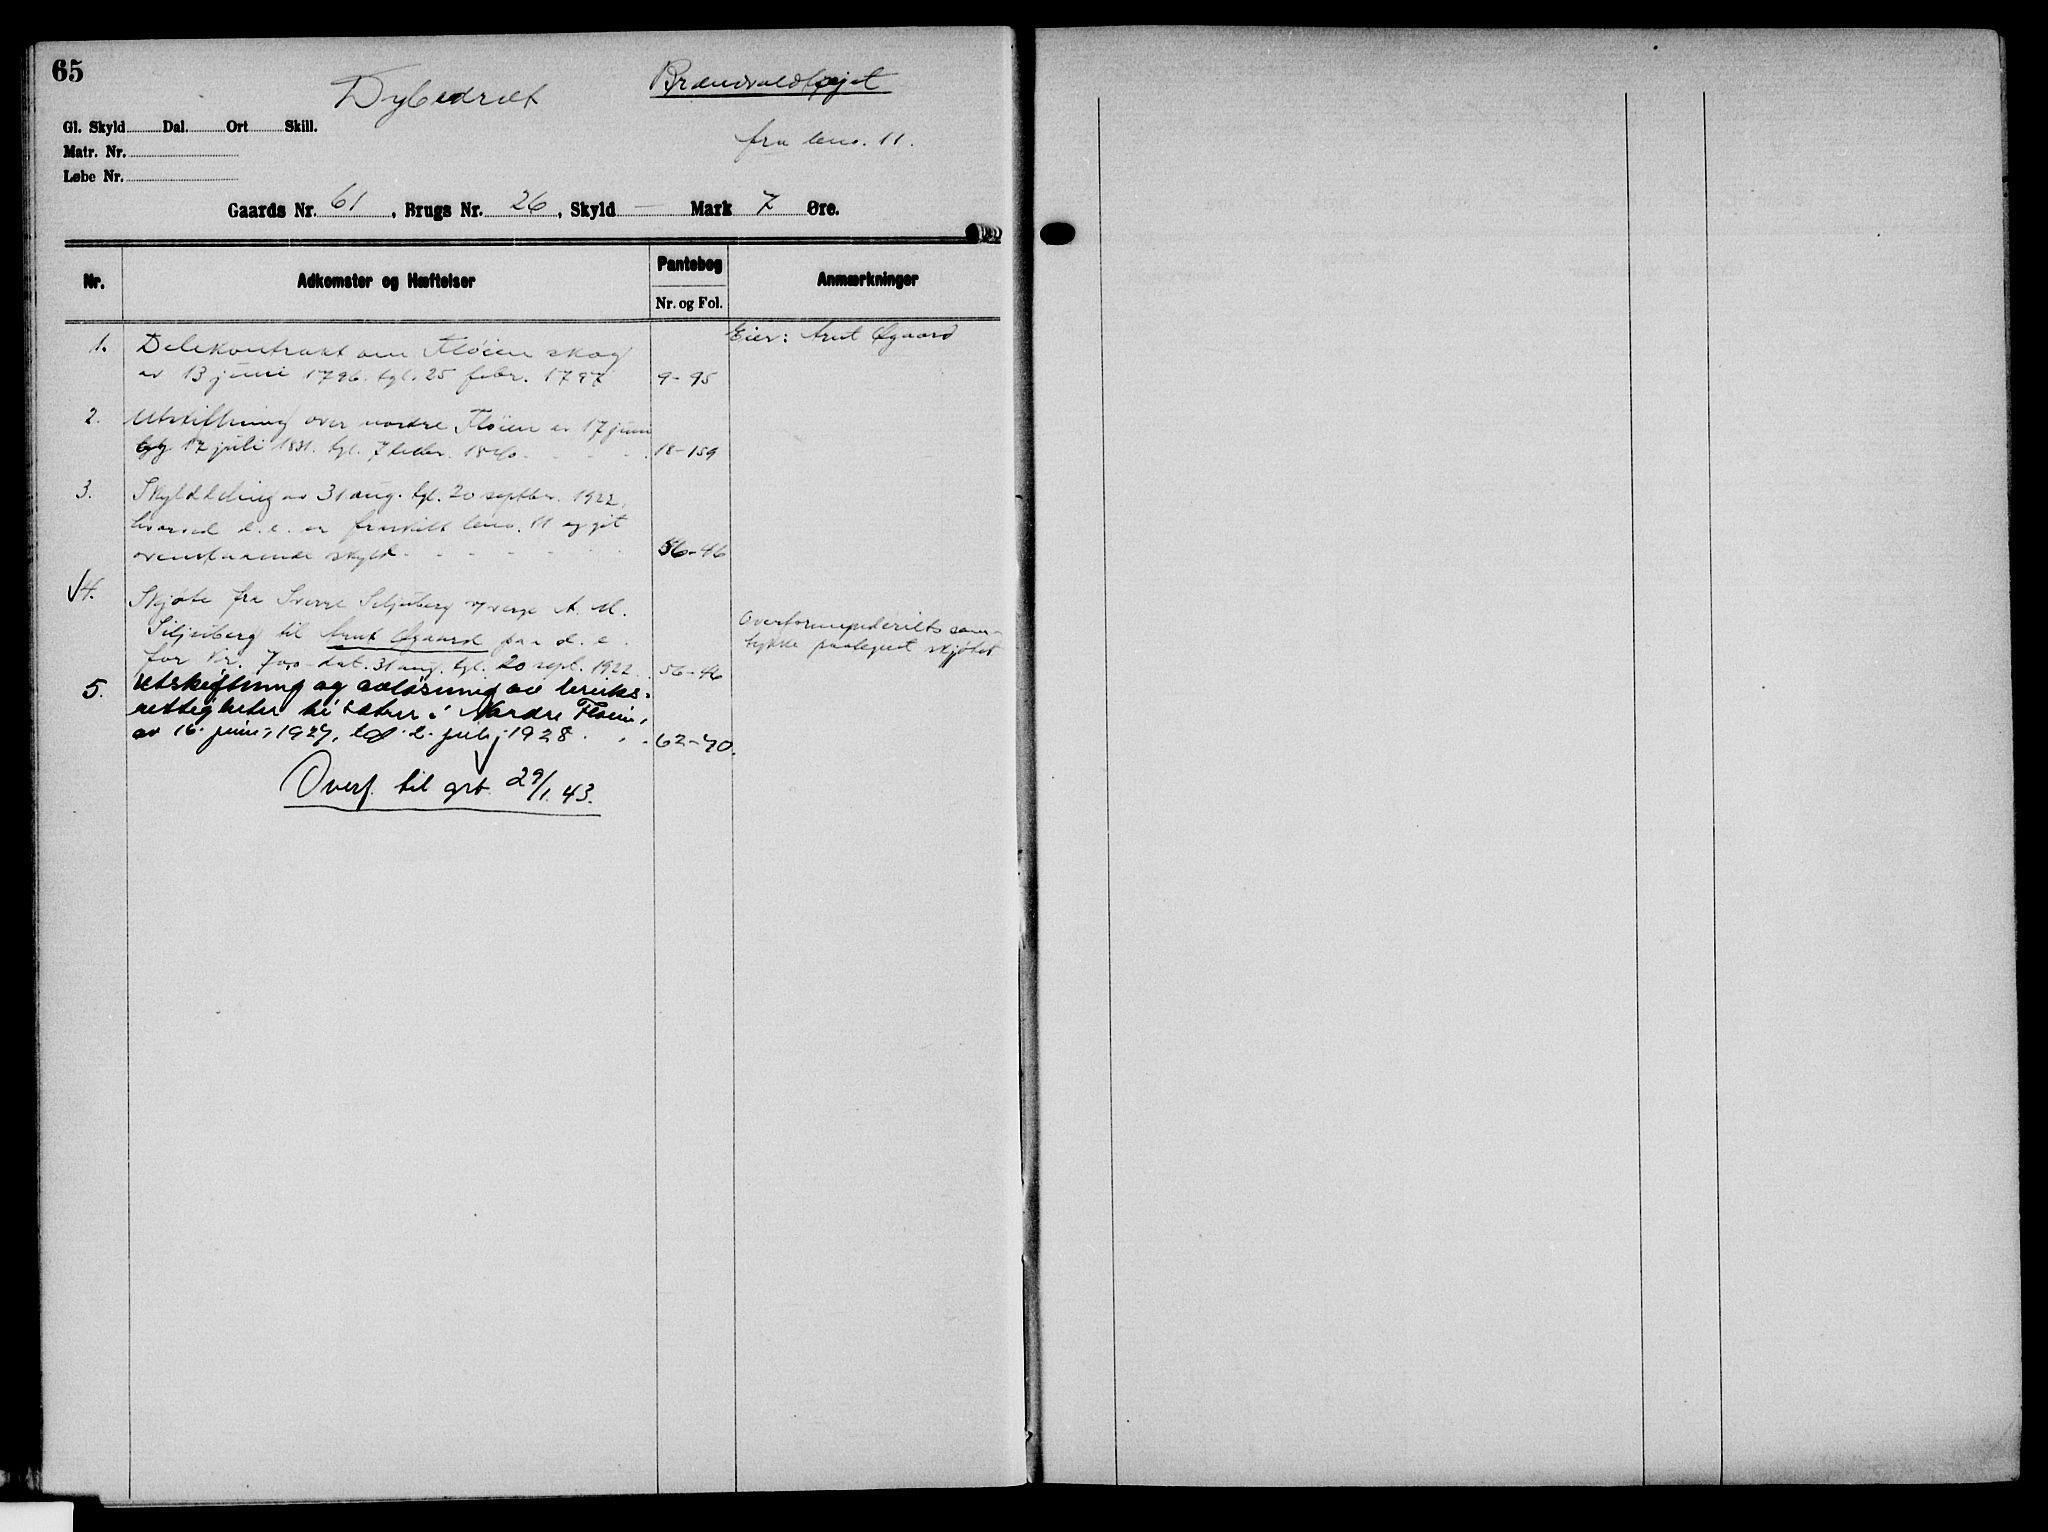 65
Dybedræt
Brandvaldtejet
Gl. Skyld Dal. Ort Skill.
fra brno. 11.
Matr. Nr.
Løbe Nr.
Gaards Nr. 61, Brugs Nr. 26, Skyld — Mark 7 Øre.
Nr. Adkomster og Hæftelser Pantebog Anmærkninger
Nr. og Fol.
Eier: Arnt Øgaard
1. Delekontrakt om Fløien skog
av 13 juni 1796. tgl. 25 febr. 1797 9-95
2. Utskiftning over nordre Fløien av 17 juni
17 juli 1831. tgl. 7 1840. 18-159
3. Skylddeling av 31 aug. tgl. 20 septbr. 1922,
hvorved d. e. er fraskilt brno. 11 og git
ovenstaaende skyld 56-46
√4. Skjøte fra Sverre Siljuberg v/verge A. M.
Siljuberg til Arnt Øgaard paa d. e.
for kr. 700- dat. 31 aug. tgl. 20 sept. 1922. 56-46
Overformynderiets sam-
tykke paategnet skjøtet
5. Utskiftning og avløsning av bruks-
rettigheter til sætrer i Nordre Fløien,
av 16. juni 1927, tgl. 2. juli 1928. 62-70.
Overf. til grb. 29/1.43.